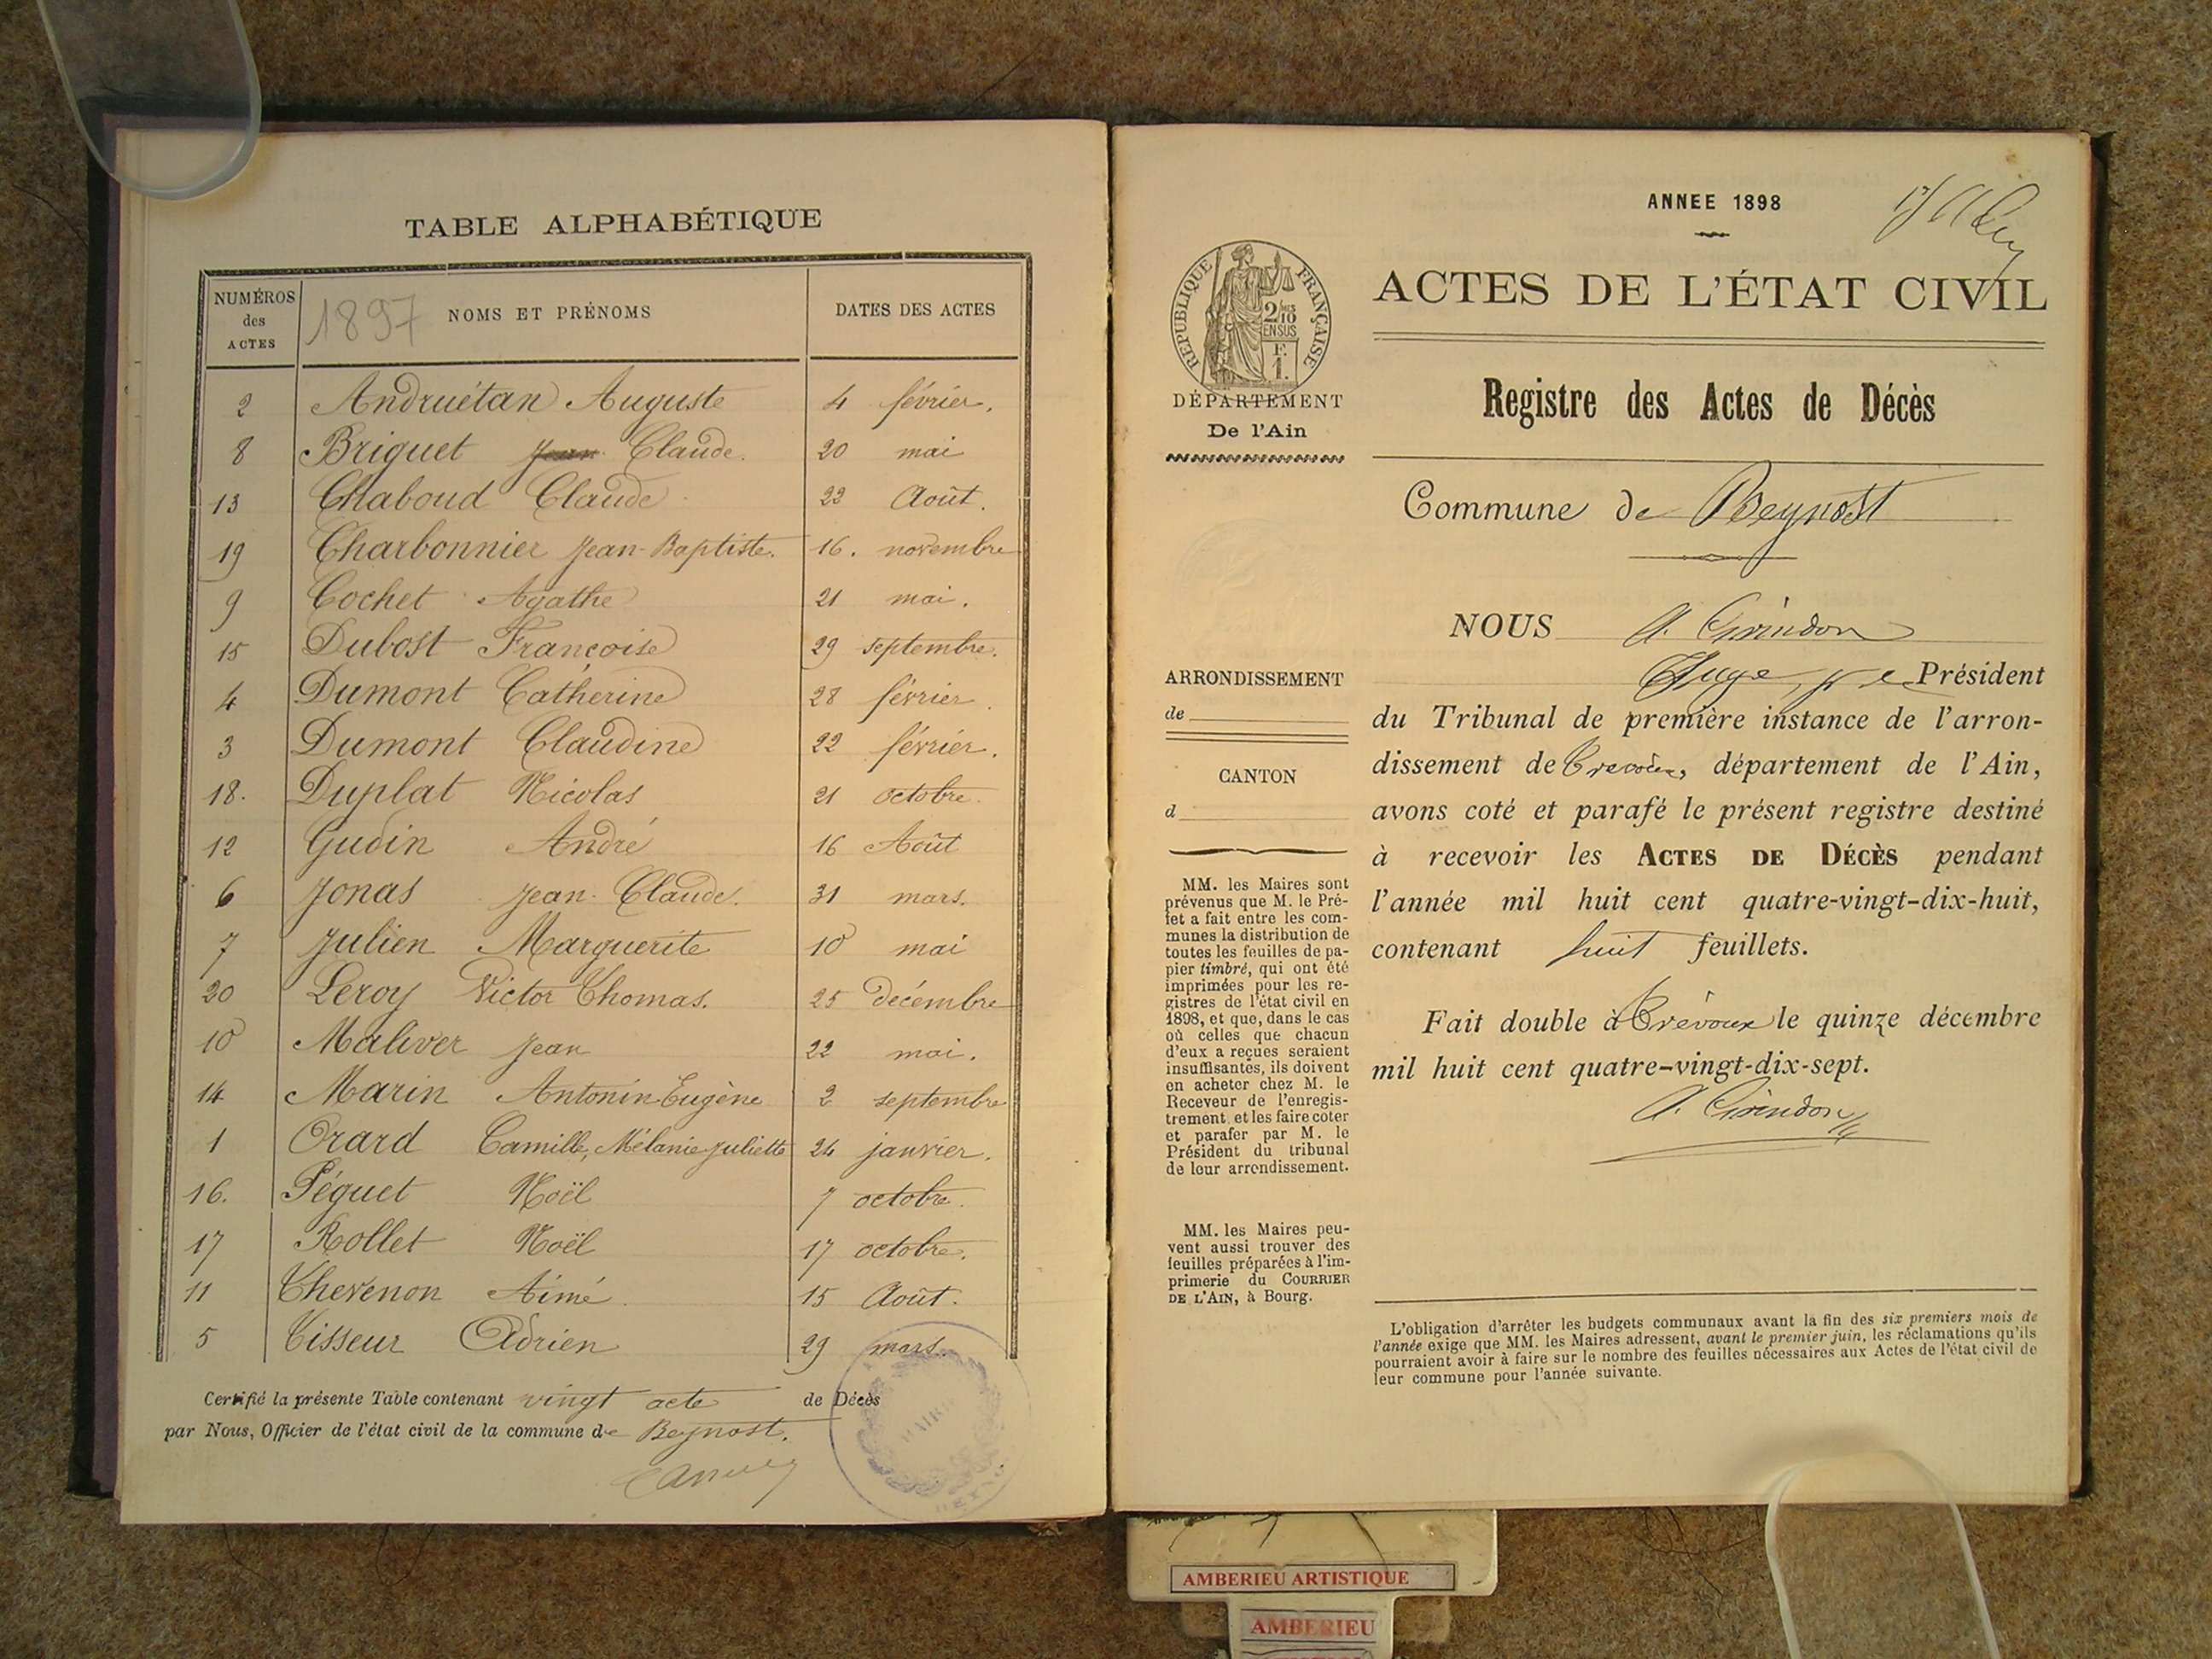 TABLE ALPHABÉTIQUE
NUMÉROS des ACTES 1897 NOMS ET PRÉNOMS DATES DES ACTES
2 Andruétan Auguste 4 février.
8 Briguet Jean Claude. 20 mai
13 Chaboud Claude 22 Août.
19 Charbonnier Jean-Baptiste. 16. novembre
9 Cochet Agathe 21 mai.
15 Dubost Françoise 29 septembre.
4 Dumont Catherine 28 février.
3 Dumont Claudine 22 février.
18. Duplat Nicolas 21 octobre.
12 Gudin André 16 Août
6 Jonas Jean-Claude. 31 mars.
7 Julien Marguerite 10 mai
20 Leroy Victor Thomas. 25 decémbre
10 Maliver Jean 22 mai.
14 Marin Antonin-Eugène 2 septembre
1 Orard Camille, Mélanie Juliette 24 janvier.
16. Péguet Noël 7 octobre.
17 Rollet Noël 17 octobre.
11 Thevenon Aimé. 15 Août.
5 Tisseur Adrien 29 mars.
Certifié la présente Table contenant vingt acte de Décès
par Nous, Officier de l'état civil de la commune de Beynost.
MAIRIE
ANNEE 1898
RÉPUBLIQUE FRANÇAISE
2/10 EN SUS
F.
1.
DÉPARTEMENT
De l'Ain
ACTES DE L'ÉTAT CIVIL
Registre des Actes de Décès
Commune de Beynost
NOUS A. Girindon
Juge, p. le Président
du Tribunal de première instance de l'arron-
dissement de Trévoux, département de l'Ain,
avons coté et parafé le présent registre destiné
à recevoir les ACTES DE DÉCÈS pendant
l'année mil huit cent quatre-vingt-dix-huit,
contenant huit feuillets.
Fait double à Trévoux le quinze décembre
mil huit cent quatre-vingt-dix-sept.
A. Girindon
ARRONDISSEMENT
de
CANTON
d
MM. les Maires sont
prévenus que M. le Pré-
fet a fait entre les com-
munes la distribution de
toutes les feuilles de pa-
pier timbré, qui ont été
imprimées pour les re-
gistres de l'état civil en
1898, et que, dans le cas
où celles que chacun
d'eux a reçues seraient
insuffisantes, ils doivent
en acheter chez M. le
Receveur de l'enregis-
trement et les faire coter
et parafer par M. le
Président du tribunal
de leur arrondissement.
MM. les Maires peu-
vent aussi trouver des
feuilles préparées à l'im-
primerie du COURRIER
DE L'AIN, à Bourg.
L'obligation d'arrêter les budgets communaux avant la fin des six premiers mois de
l'année exige que MM. les Maires adressent, avant le premier juin, les réclamations qu'ils
pourraient avoir à faire sur le nombre des feuilles nécessaires aux Actes de l'état civil de
leur commune pour l'année suivante.
AMBERIEU ARTISTIQUE
AMBERIEU